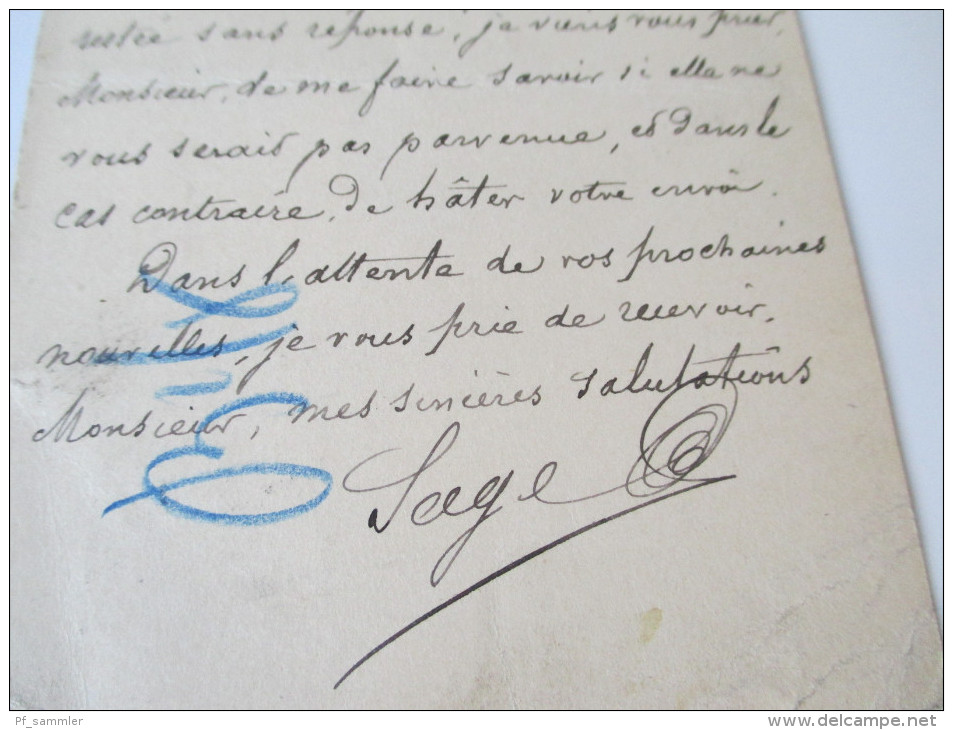 restée sans réponse, je viens vous prier,
Monsieur, de me faire savoir si elle ne
vous serait pas parvenue, et dans le
cas contraire, de hâter votre envoi.
Dans l'attente de vos prochaines
nouvelles, je vous prie de recevoir,
Monsieur, mes sincères salutations
Sage
Pf_sammler
www.delcampe.net